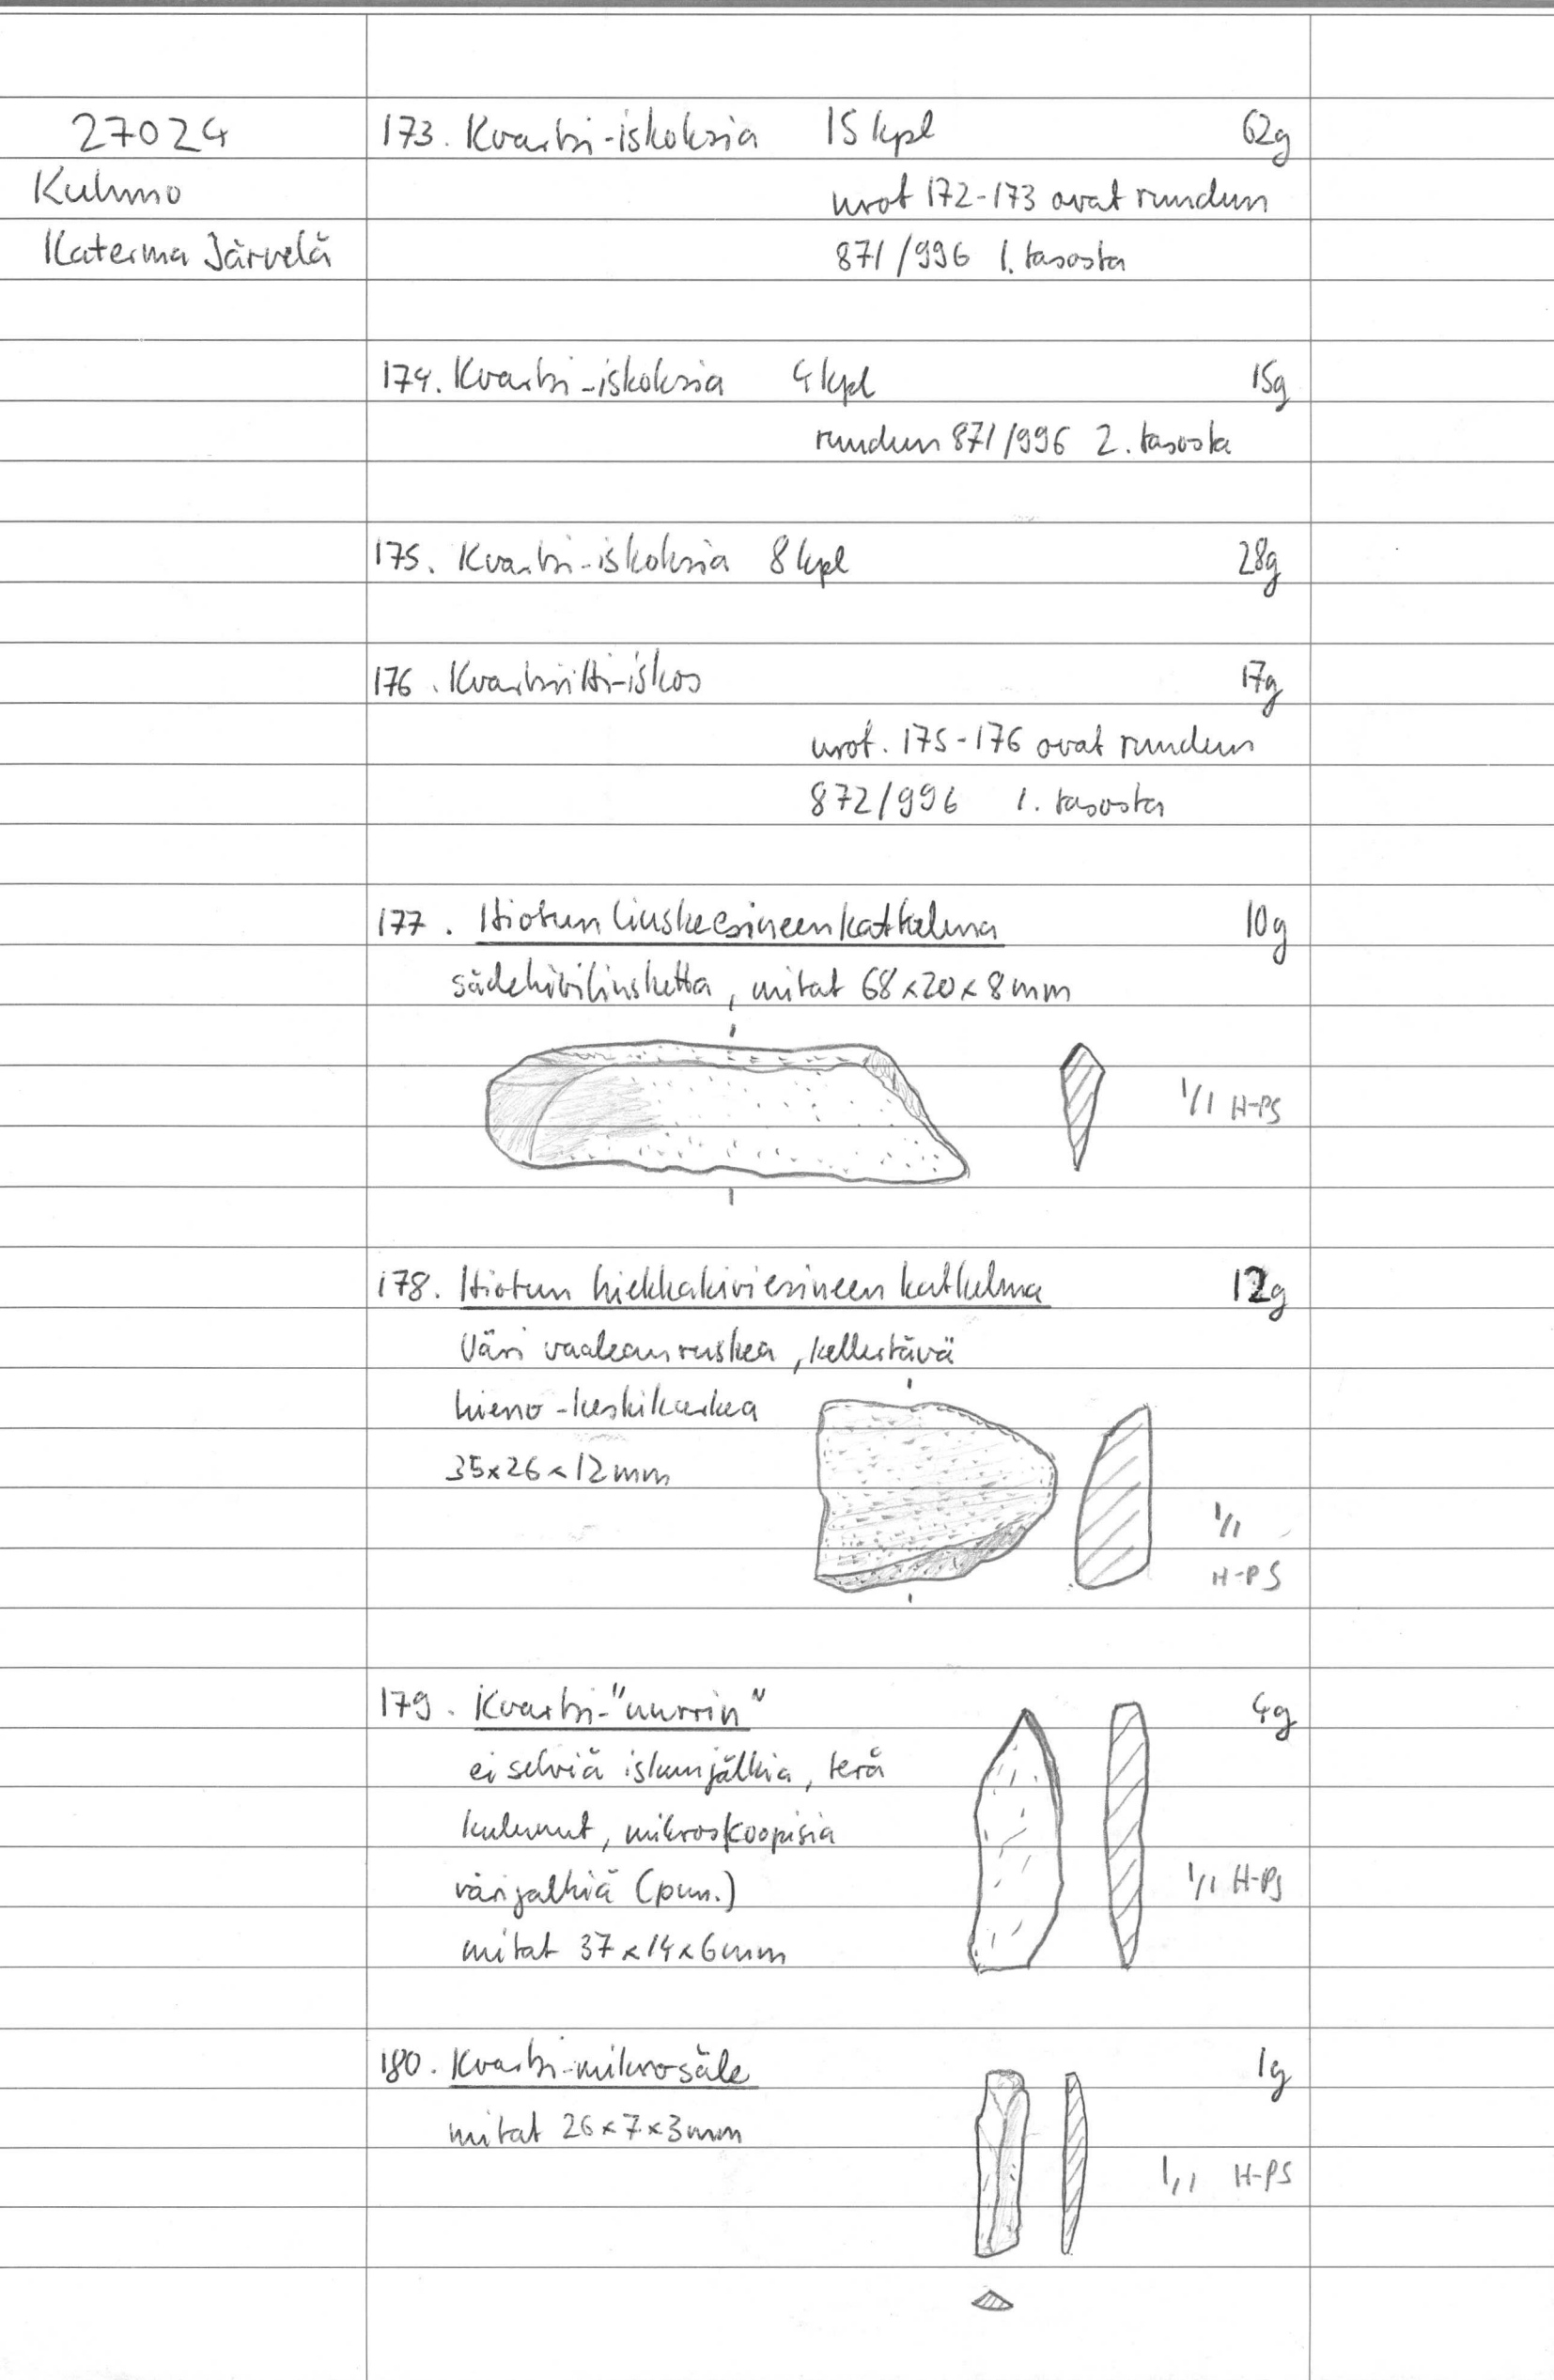 27024
Kuhmo
Katerma Järvelä
173. Kvartsi-iskoksia 15 kpl 62g
nrot 172-173 ovat ruudun
871/996 1. tasosta
174. Kvartsi-iskoksia 4 kpl 15g
ruudun 871/996 2. tasosta
175. Kvartsi-iskoksia 8 kpl 28g
176. Kvartsiitti-iskos 17g
nrot. 175-176 ovat ruudun
872/996 1. tasosta
177. Hiotun liuskeesineen katkelma 10g
sädekiviliusketta, mitat 68x20x8mm
1/1 H-PS
178. Hiotun hiekkakiviesineen katkelma 12g
Väri vaaleanruskea, kellertävä
hieno-keskikarkea
35x26x12mm
1/1
H-PS
179. Kvartsi-"uurrin" 4g
ei selviä iskunjälkiä, terä
kulunut, mikroskoopisia
värijälkiä (pun.)
1/1 H-PS
mitat 37x14x6mm
180. Kvartsi-mikrosäle 1g
mitat 26x7x3mm
1/1 H-PS